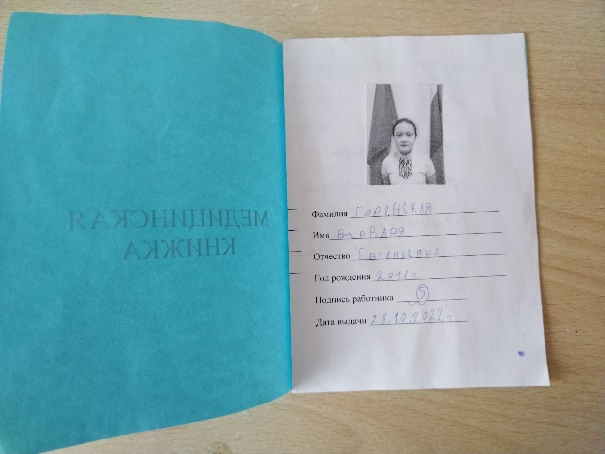 МЕДИЦИНСКАЯ
КНИЖКА
Фамилия
Имя Варвара
Отчество Евгеньевна
Год рождения 2011г
Подпись работника
Дата выдачи 28.10.2022г